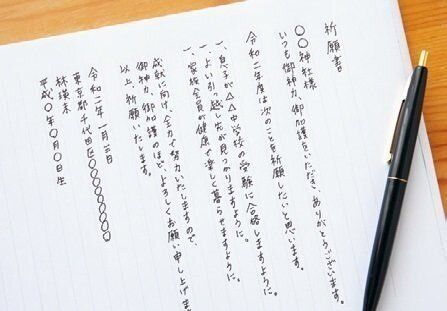 祈願書
〇〇神社様
いつも御神力、御加護をいただき、ありがとうございます。
令和二年度は次のことを祈願したいと思います。
一、息子が△△中学校の受験に合格しますように。
一、よい引っ越し先が見つかりますように。
一、家族全員が健康で楽しく暮らせますように。
成就に向け、全力で努力いたしますので、
御神力、御加護のほど、よろしくお願い申し上げま
以上、祈願いたします。
令和二年一月三日
東京都千代田区〇〇〇〇〇〇〇
林瑛未
平成〇年〇月〇日生